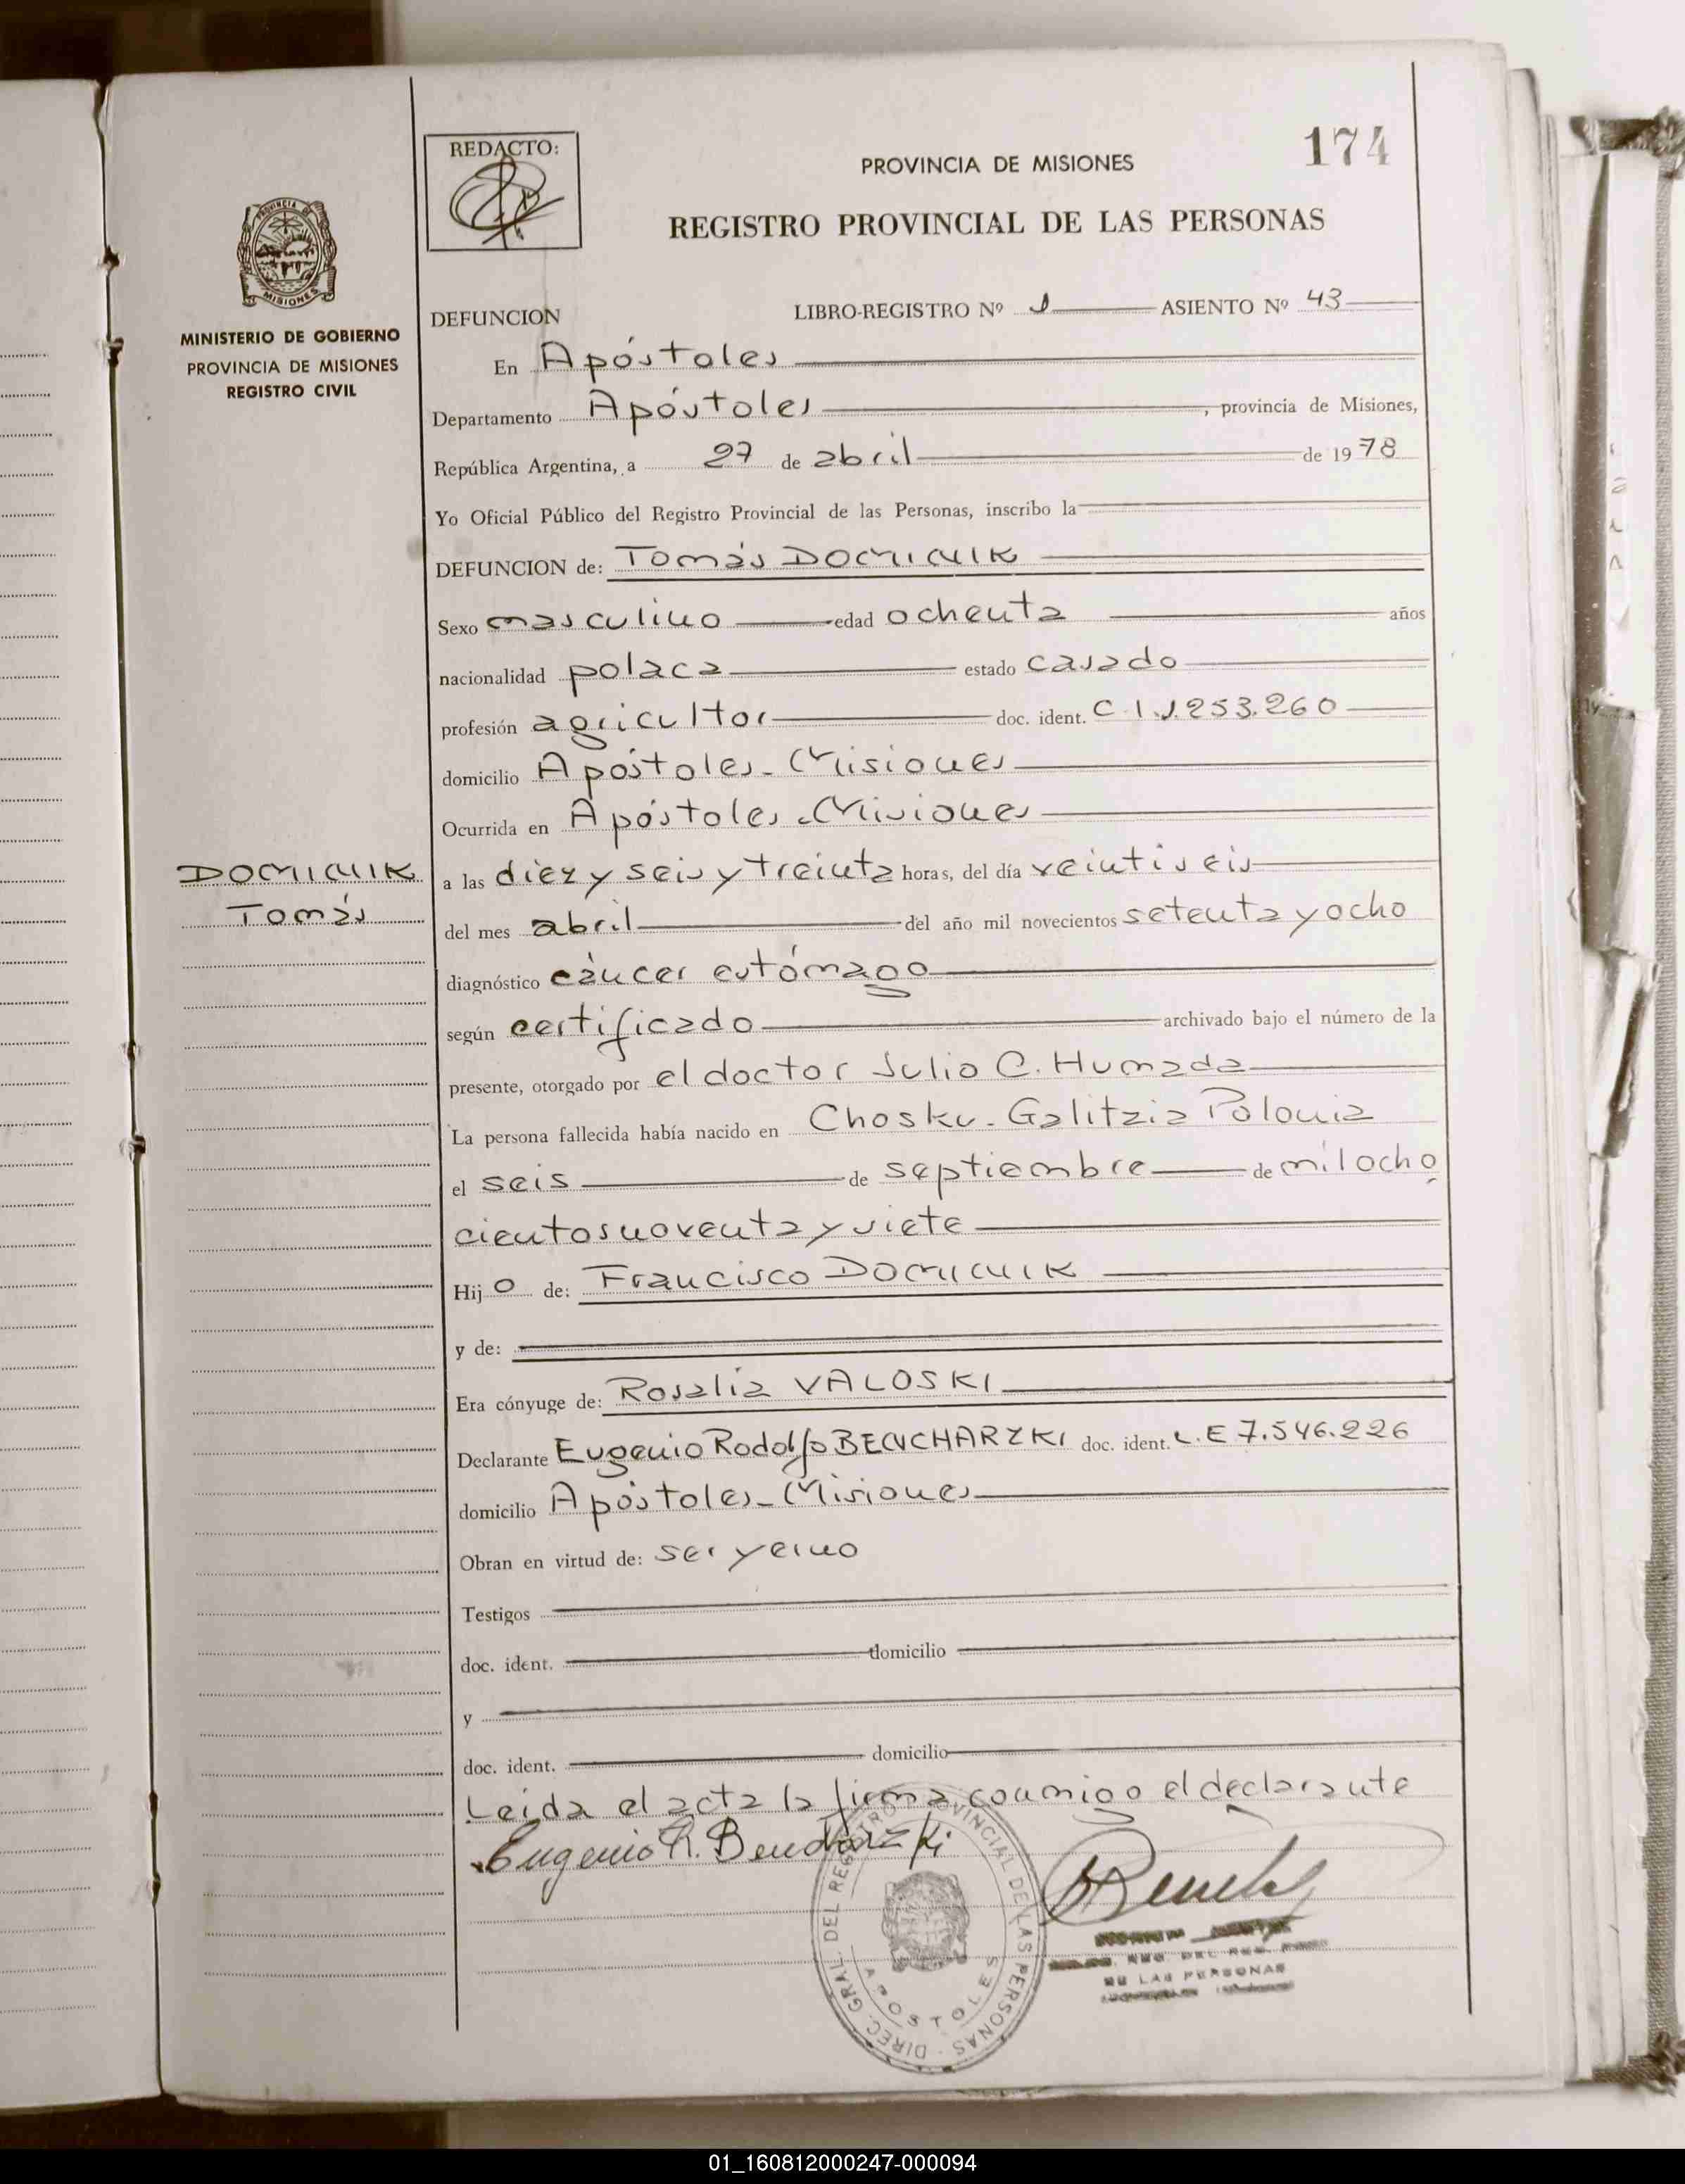 174
REDACTO:
PROVINCIA DE MISIONES
REGISTRO PROVINCIAL DE LAS PERSONAS
PROVINCIA DE
MISIONES
MINISTERIO DE GOBIERNO
PROVINCIA DE MISIONES
REGISTRO CIVIL
DEFUNCION LIBRO-REGISTRO Nº 1 ASIENTO Nº 43
En Apóstoles
Departamento Apóstoles, provincia de Misiones,
República Argentina, a 27 de abril de 1978
Yo Oficial Público del Registro Provincial de las Personas, inscribo la
DEFUNCION de: Tomás DOMINIK
Sexo masculino edad ochenta años
nacionalidad polaca estado casado
profesión agricultor doc. ident. C I. 1.253.260
domicilio Apóstoles - Misiones
Ocurrida en Apóstoles - Misiones
DOMINIK
Tomás
a las diez y seis y treinta horas, del día veintiseis
del mes abril del año mil novecientos setenta y ocho
diagnóstico cáncer estómago
según certificado archivado bajo el número de la
presente, otorgado por el doctor Julio C. Humada
La persona fallecida había nacido en Chosku - Galitzia Polonia
el seis de septiembre de mil ocho
cientos noventa y siete
Hijo de: Francisco DOMINIK
y de:
Era cónyuge de: Rosalia VALOSKI
Declarante Eugenio Rodolfo BENCHARZKI doc. ident. L. E 7.546.226
domicilio Apóstoles - Misiones
Obran en virtud de: ser yerno
Testigos
doc. ident. domicilio
y
doc. ident. domicilio
Leida el acta la firma conmigo el declarante
Eugenio R. Bencharzki
DIREC. GRAL. DEL REGISTRO PROVINCIAL DE LAS PERSONAS
APOSTOLES
DE LAS PERSONAS
01_160812000247-000094